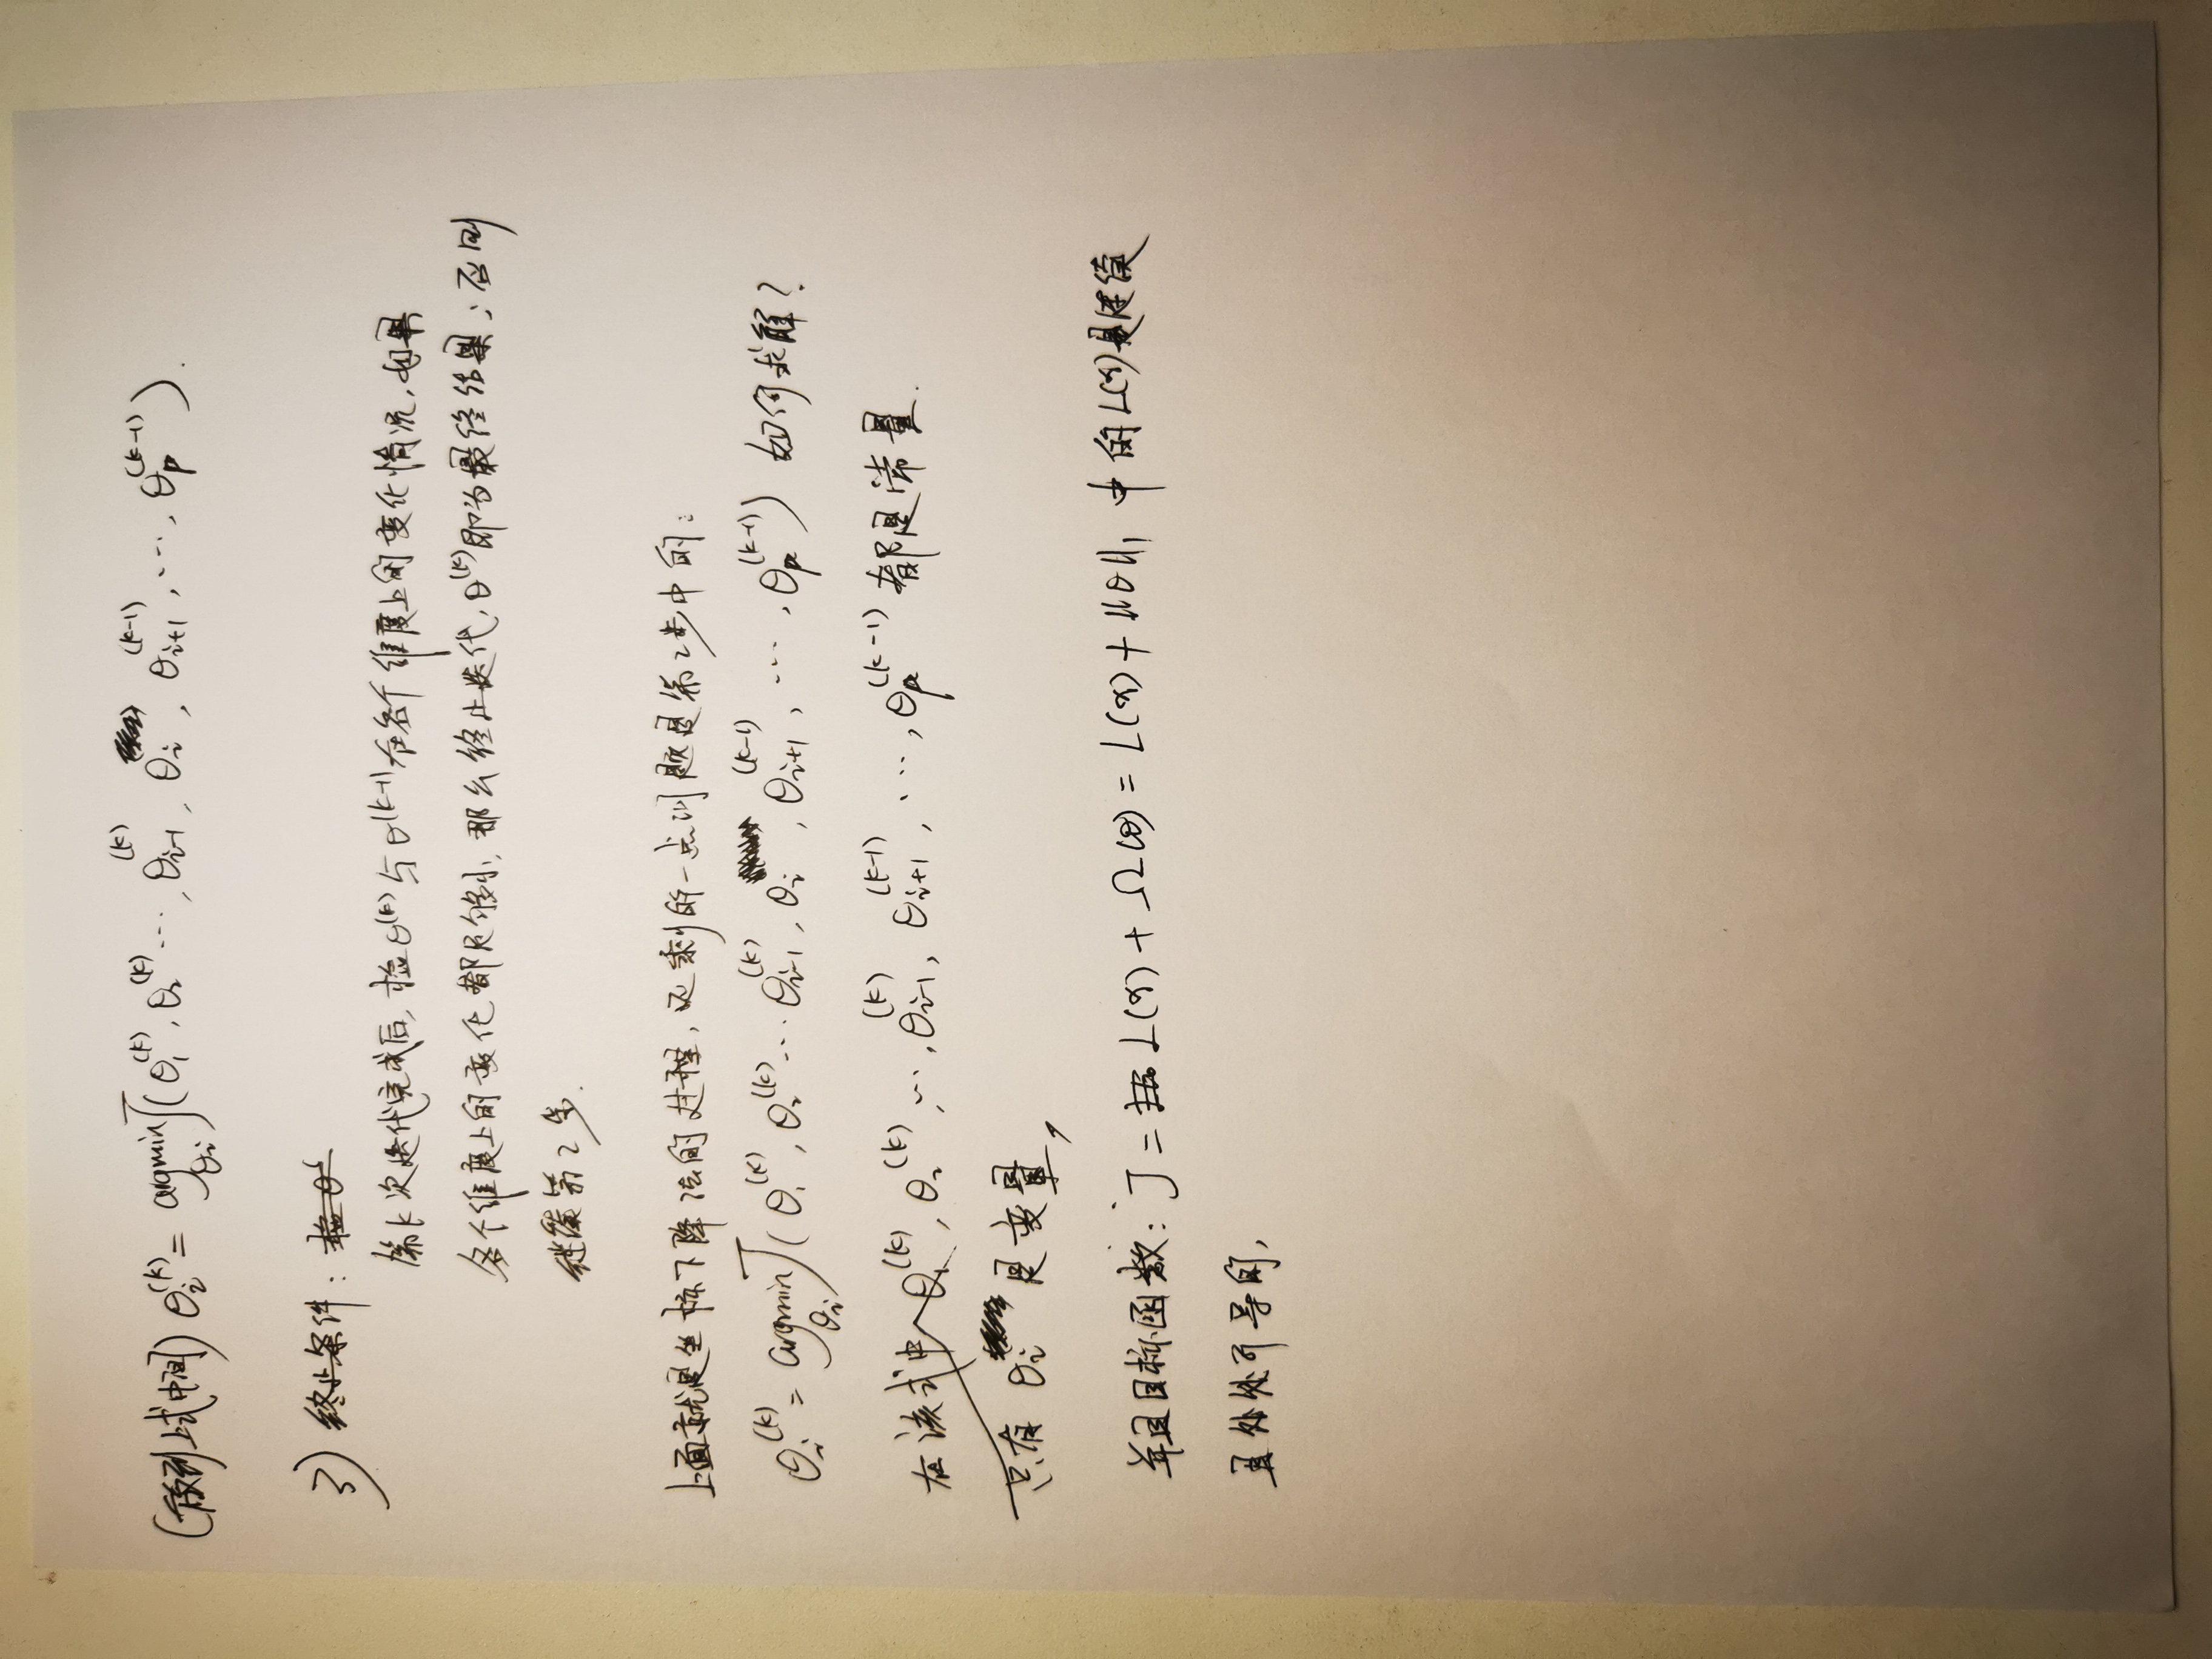 (放到上式中间) θᵢ⁽ᵏ⁾ = argmin_θᵢ J(θ₁⁽ᵏ⁾, θ₂⁽ᵏ⁾ ⋯, θᵢ₋₁⁽ᵏ⁾, θᵢ, θᵢ₊₁⁽ᵏ⁻¹⁾, ⋯, θₚ⁽ᵏ⁻¹⁾).
3) 终止条件:
第k次迭代完成后, 检θ⁽ᵏ⁾与θ⁽ᵏ⁻¹⁾在各个维度上的变化情况, 如果
各个维度上的变化都足够小, 那么终止迭代, θ⁽ᵏ⁾即为最终结果; 否则
继续第2步.
上面就是坐标下降法的过程, 还剩的一点问题是第2步中的:
θᵢ⁽ᵏ⁾ = argmin_θᵢ J(θ₁⁽ᵏ⁾, θ₂⁽ᵏ⁾ ⋯ θᵢ₋₁⁽ᵏ⁾, θᵢ, θᵢ₊₁⁽ᵏ⁻¹⁾, ⋯, θₚ⁽ᵏ⁻¹⁾) 如何求解?
在该式中 θ₁⁽ᵏ⁾, θ₂⁽ᵏ⁾, ⋯, θᵢ₋₁⁽ᵏ⁾, θᵢ₊₁⁽ᵏ⁻¹⁾, ⋯, θₚ⁽ᵏ⁻¹⁾ 都是常量.
只有 θᵢ 是变量,
并且目标函数: J = L(x) + Ω(θ) = L(x) + ‖θ‖₁ 中的L(x)是连续
且处处可导的,